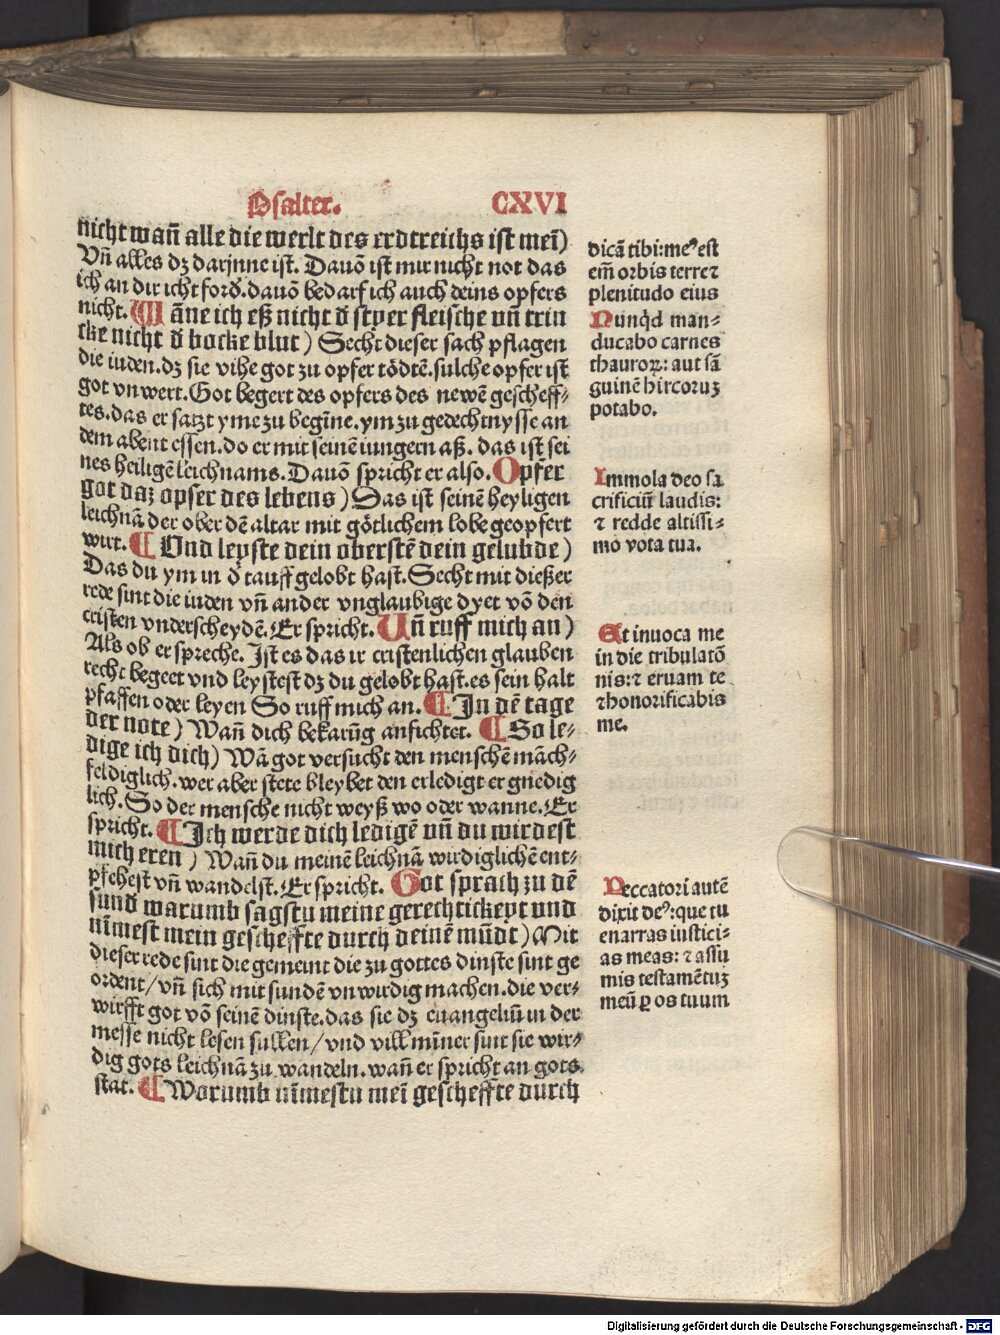 Psalter. CXVI
nicht wañ alle die werlt des erdtreichs ist mei)
Vñ alles dz darjnne ist. Dauō ist mir nicht not das
ich an dir icht ford̄. dauō bedarf ich auch deins opfers
nicht. Wāne ich eß nicht d̄ styer fleische vñ trin
cke nicht d̄ bocke blut) Secht dieser sach pflagen
die iuden. dz sie vihe got zu opfer tödtē. sulche opfer ist
got vnwert. Got begert des opfers des newē gescheff⸗
tes. das er satzt yme zu begīne. ym zu gedechtnysse an
dem abent essen. do er mit seinē iungern aß. das ist sei
nes heiligē leichnams. Dauō spricht er also. Opfer
got daz opfer des lebens) Das ist seinē heyligen
leichnā der ober dē altar mit götlichem lobe geopfert
wirt. ¶ Vnd leyste dein oberstē dein gelubde)
Das du ym in d̄ tauff gelobt hast. Secht mit dießer
rede sint die iuden vñ ander vnglaubige dyet vō den
cristen vnderscheydē. Er spricht. Vñ ruff mich an)
Als ob er spreche. Ist es das ir cristenlichen glauben
recht begeet vnd leystest dz du gelobt hast. es sein halt
pfaffen oder leyen So ruff mich an. ¶ In dē tage
der note) Wañ dich bekarūg anfichtet. ¶ So le⸗
dige ich dich) Wā got versucht den menschē māch⸗
feldiglich. wer aber stete bleybet den erledigt er gnedig
lich. So der mensche nicht weyß wo oder wanne. Er
spricht. ¶ Ich werde dich ledigē vñ du wirdest
mich eren) Wañ du meinē leichnā wirdiglichē ent⸗
pfehest vñ wandelst. Er spricht. Got sprach zu dē
sund warumb sagstu meine gerechtickeyt vnd
nīmest mein gescheffte durch deinē mūdt) Mit
dieser rede sint die gemeint die zu gottes dinste sint ge
ordent/ vñ sich mit sundē vnwirdig machen. die ver⸗
wirfft got vō seinē dinste. das sie dz euangeliū in der
messe nicht lesen sullen/ vnd vill mīner sint sie wir⸗
dig gots leichnā zu wandeln. wañ er spricht an gots
stat. ¶ Warumb nīmestu mei gescheffte durch
dicā tibi: meꝰ est
em̄ orbis terre ⁊
plenitudo eius
Nunqd̄ man⸗
ducabo carnes
thauroꝝ: aut sā
guinē hircoruꝫ
potabo.
Immola deo sa
crificiū laudis:
⁊ redde altissi⸗
mo vota tua.
Et inuoca me
in die tribulatō
nis: ⁊ eruam te
⁊ honorificabis
me.
Peccatori autē
dixit deꝰ: que tu
enarras iustici⸗
as meas: ⁊ assu
mis testamētuꝫ
meū ꝑ os tuum
Digitalisierung gefördert durch die Deutsche Forschungsgemeinschaft - DFG